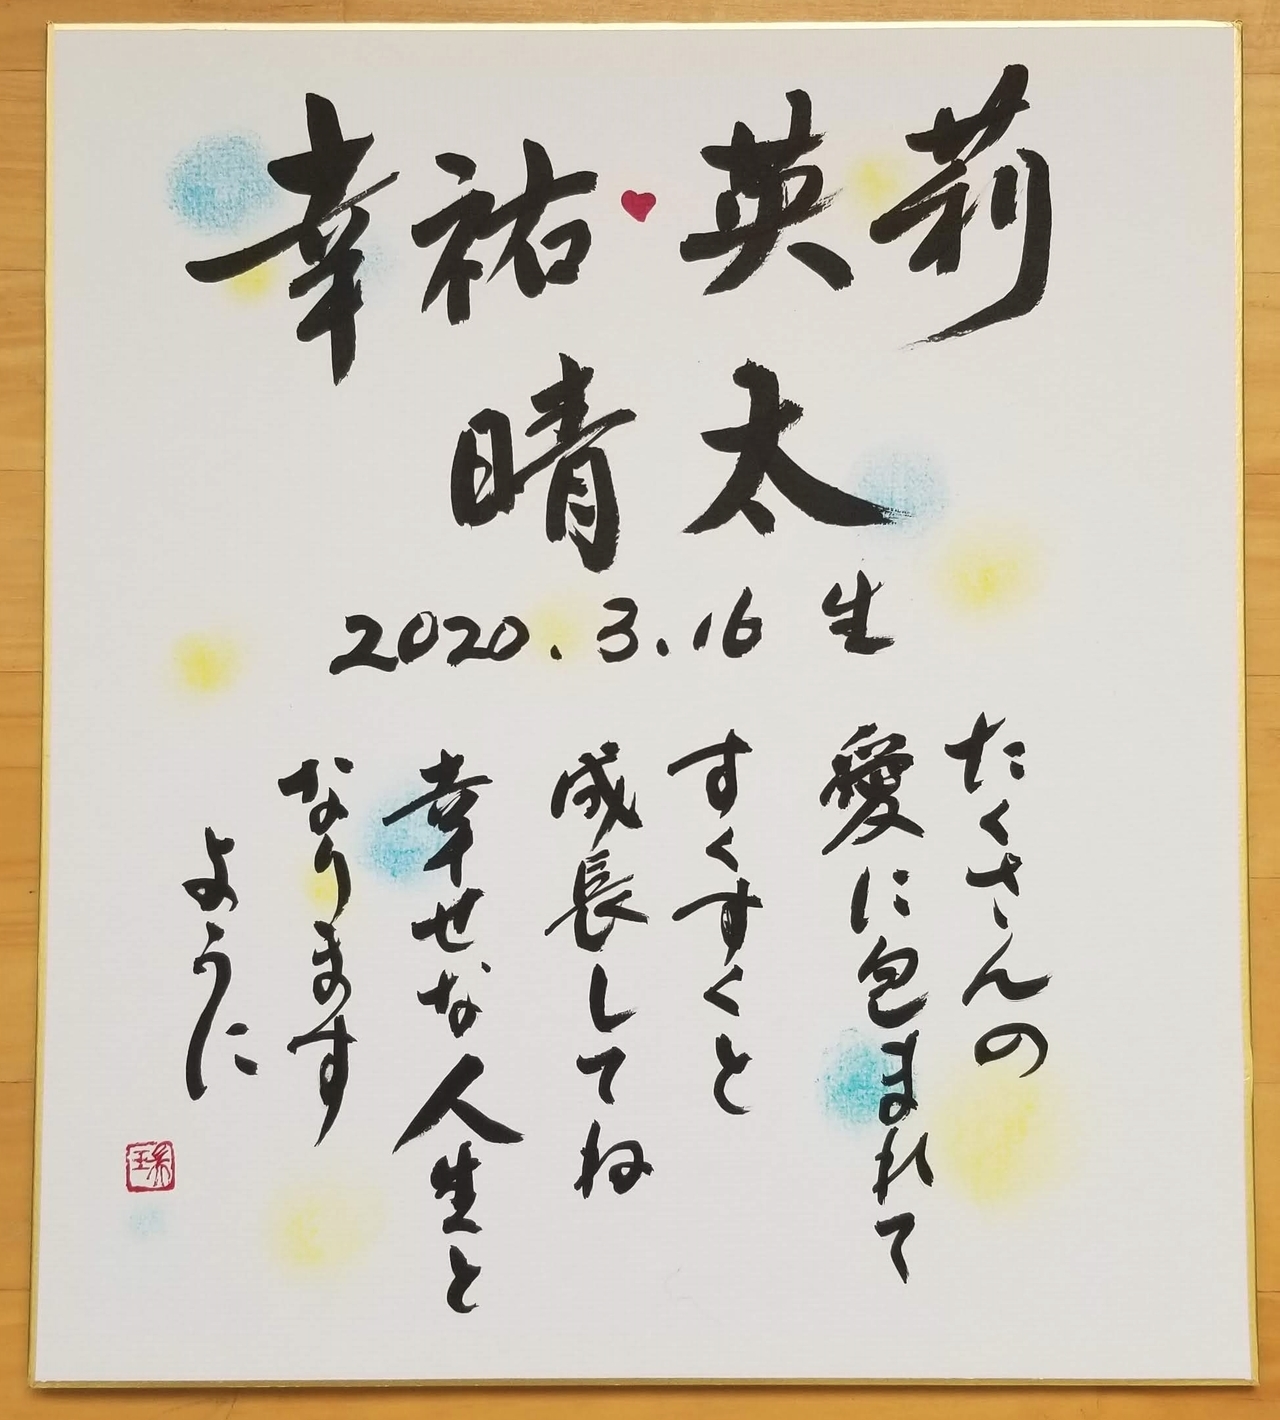 幸祐♥英莉
晴太
2020.3.16 生
たくさんの
愛に包まれて
すくすくと
成長してね
幸せな人生と
なります
ように